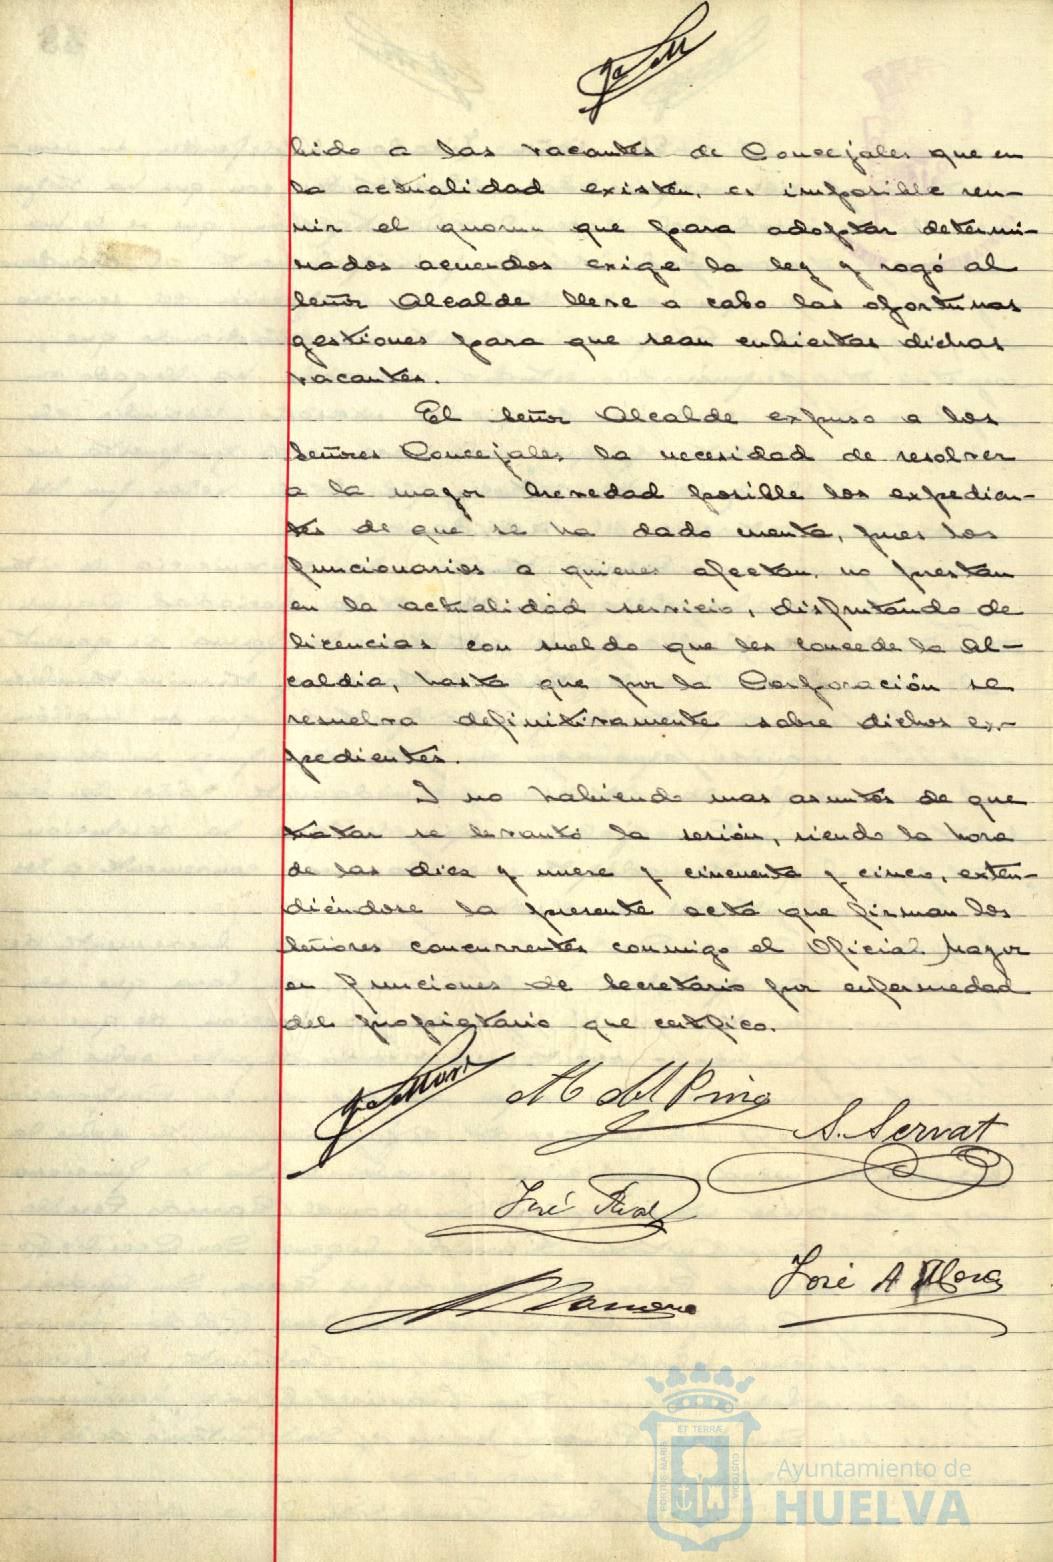 bido a las vacantes de Concejales que en
la actualidad existen, es imposible reu-
nir el quorum que para adoptar determi-
nados acuerdos exige la ley y rogó al
Señor Alcalde lleve a cabo las oportunas
gestiones para que sean cubiertas dichas
vacantes.
El Señor Alcalde expuso a los
Señores Concejales la necesidad de resolver
a la mayor brevedad posible los expedien-
tes de que se ha dado cuenta, pues los
funcionarios a quienes afectan, no prestan
en la actualidad servicio, disfrutando de
licencias con sueldo que les concede la Al-
caldia, hasta que por la Corporación se
resuelva definitivamente sobre dichos ex-
pedientes.
Y no habiendo mas asuntos de que
tratar se levantó la sesión, siendo la hora
de las diez y nueve y cincuenta y cinco, exten-
diéndose la presente acta que firman los
Señores concurrentes conmigo el Oficial Mayor
en funciones de Secretario por enfermedad
del propietario que certifico.
M del Pino
S. Servat
José
José A
ET TERRÆ
PORTUS MARIS
CUSTODIA
Ayuntamiento de
HUELVA